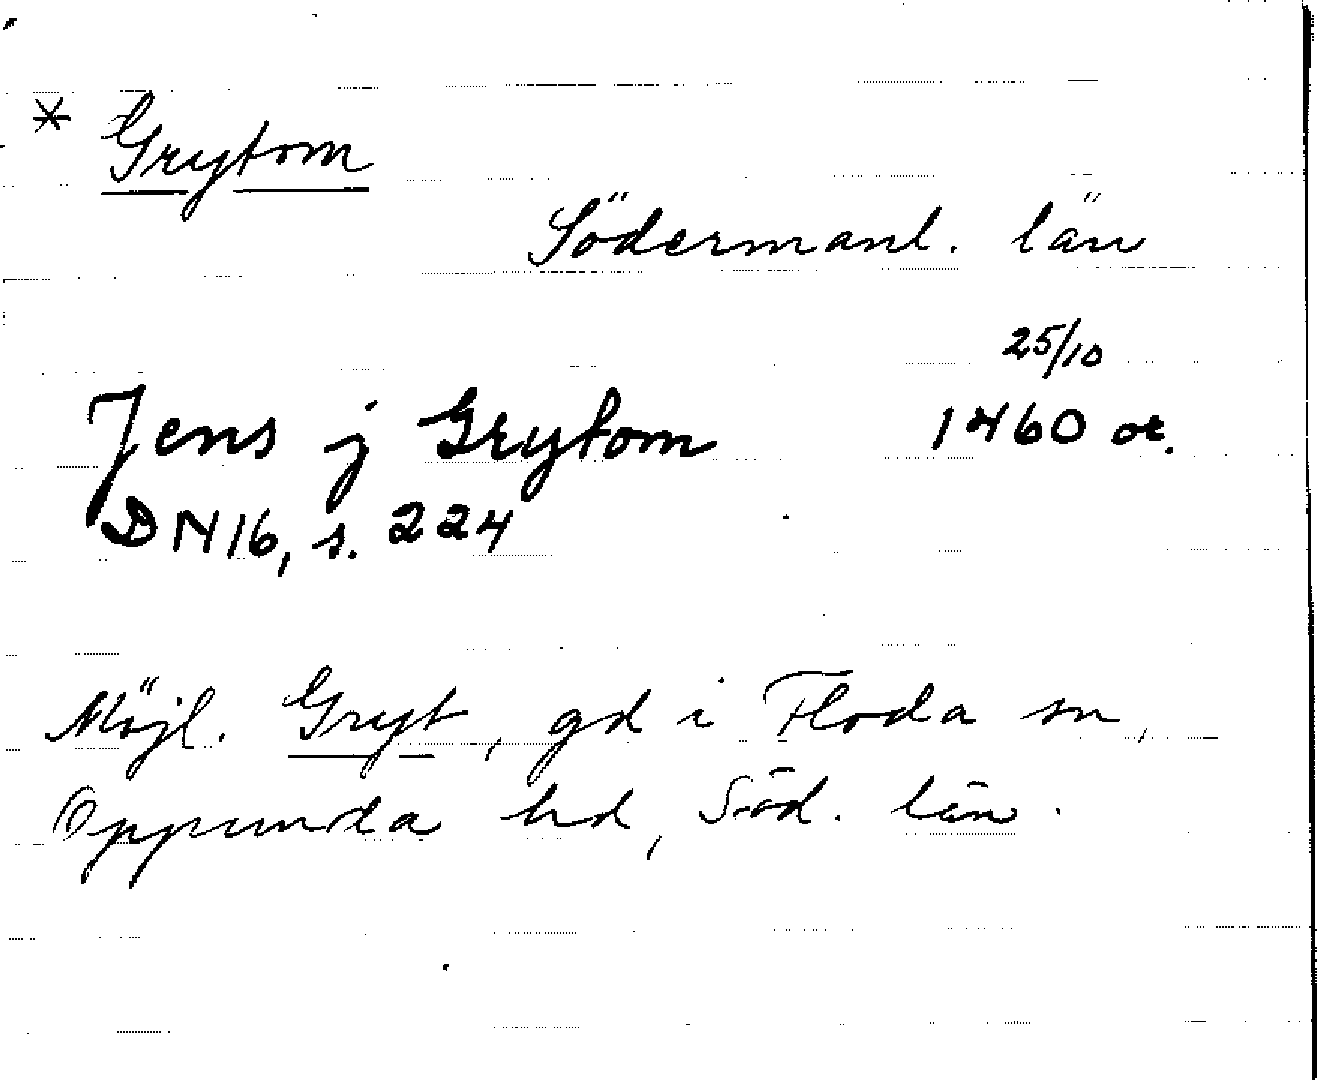 * Grytom
Södermanl. län
25/10
Jens j Grytom 1460 or.
DN 16, s. 224
Möjl. Gryt, gd i Floda sn,
Oppunda hd, Söd. län.